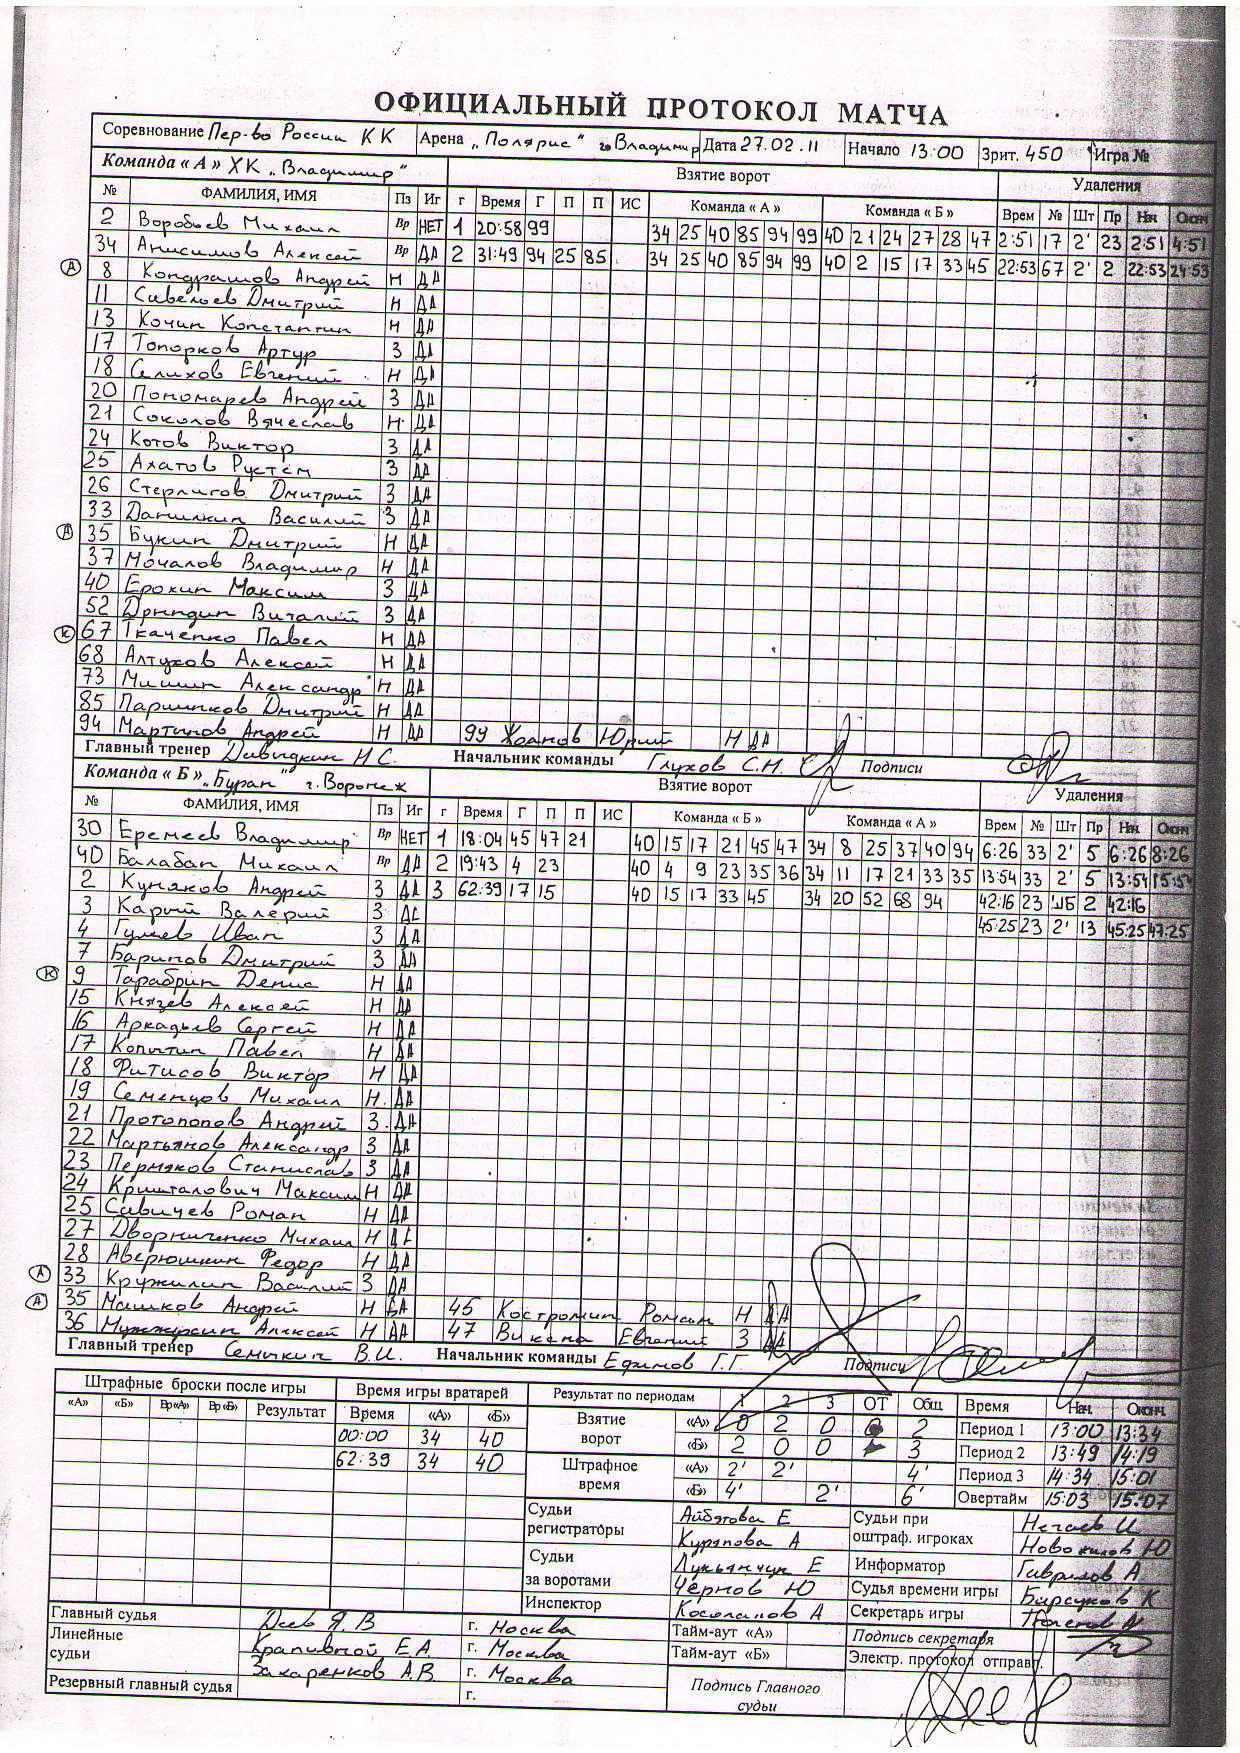 ОФИЦИАЛЬНЫЙ ПРОТОКОЛ МАТЧА
Соревнование Пер-во России КК Арена „Полярис“ г. Владимир Дата 27.02.11 Начало 13:00 Зрит. 450 Игра №
Команда « А » ХК „Владимир“ Взятие ворот Удаления
№ ФАМИЛИЯ, ИМЯ Пз Иг г Время Г П П ИС Команда « А » Команда « Б » Врем № Шт Пр Нач. Оконч.
2 Воробьев Михаил Вр НЕТ 1 20:58 99 34 25 40 85 94 99 40 21 24 27 28 47 2:51 17 2' 23 2:51 4:51
34 Анисимов Алексей Вр ДА 2 31:49 94 25 85 34 25 40 85 94 99 40 2 15 17 33 45 22:53 67 2' 2 22:53 24:53
А 8 Кондрашов Андрей Н ДА
11 Савельев Дмитрий Н ДА
13 Кочин Константин Н ДА
17 Топорков Артур З ДА
18 Селихов Евгений Н ДА
20 Пономарев Андрей З ДА
21 Соколов Вячеслав Н ДА
24 Котов Виктор З ДА
25 Ахатов Рустем З ДА
26 Стерлигов Дмитрий З ДА
33 Данилкин Василий З ДА
А 35 Букин Дмитрий Н ДА
37 Мочалов Владимир Н ДА
40 Ерохин Максим З ДА
52 Дрындин Виталий З ДА
К 67 Ткаченко Павел Н ДА
68 Алтухов Алексей Н ДА
73 Мишин Александр Н ДА
85 Паршиков Дмитрий Н ДА
94 Мартынов Андрей Н ДА 99 Жданов Юрий Н ДА
Главный тренер Давыдкин Н С. Начальник команды Глухов С.Н. Подписи
Команда « Б » „Буран“ г. Воронеж Взятие ворот Удаления
№ ФАМИЛИЯ, ИМЯ Пз Иг г Время Г П П ИС Команда « Б » Команда « А » Врем № Шт Пр Нач. Оконч.
30 Еремеев Владимир Вр НЕТ 1 18:04 45 47 21 40 15 17 21 45 47 34 8 25 37 40 94 6:26 33 2' 5 6:26 8:26
40 Балабан Михаил Вр ДА 2 19:43 4 23 40 4 9 23 35 36 34 11 17 21 33 35 13:54 33 2' 5 13:54 15:54
2 Куняков Андрей З ДА 3 62:39 17 15 40 15 17 33 45 34 20 52 68 94 42:16 23 ШБ 2 42:16
3 Карий Валерий З ДА 45:25 23 2' 13 45:25 47:25
4 Гуляев Иван З ДА
7 Баринов Дмитрий З ДА
К 9 Тарабрин Денис Н ДА
15 Князев Алексей Н ДА
16 Аркадьев Сергей Н ДА
17 Копытин Павел Н ДА
18 Фитисов Виктор Н ДА
19 Семенцов Михаил Н. ДА
21 Протопопов Андрей З. ДА
22 Мартьянов Александр З ДА
23 Пермяков Станислав З ДА
24 Кришталович Максим Н ДА
25 Савичев Роман Н ДА
27 Дворниченко Михаил Н ДА
28 Аверюшкин Федор Н ДА
А 33 Кружилин Василий З ДА
А 35 Машков Андрей Н ДА 45 Костромин Роман Н ДА
36 Алексей Н ДА 47 Викена Евгений З ДА
Главный тренер Семыкин В.И. Начальник команды Ефимов Г.Г. Подписи
Штрафные броски после игры Время игры вратарей Результат по периодам 1 2 3 ОТ Общ. Время Нач. Оконч.
«А» «Б» Вр«А» Вр«Б» Результат Время «А» «Б» Взятие ворот «А» 0 2 0 0 2 Период 1 13:00 13:34
00:00 34 40 «Б» 2 0 0 3 Период 2 13:49 14:19
62:39 34 40 Штрафное время «А» 2' 2' 4' Период 3 14:34 15:01
«Б» 4' 2' 6' Овертайм 15:03 15:07
Судьи регистраторы Айбятова Е Судьи при оштраф. игроках Нечаев И
Куряпова А Новожилов Ю
Судьи за воротами Лукьянчук Е Информатор Гаврилов А
Чернов Ю Судья времени игры Барсуков К
Инспектор Косолапов А Секретарь игры
Главный судья Деев Я. В г. Москва Тайм-аут «А» Подпись секретаря
Линейные судьи Крапивной Е.А. г. Москва Тайм-аут «Б» Электр. протокол отправл.
Захаренков А.В. г. Москва Подпись Главного судьи
Резервный главный судья г.